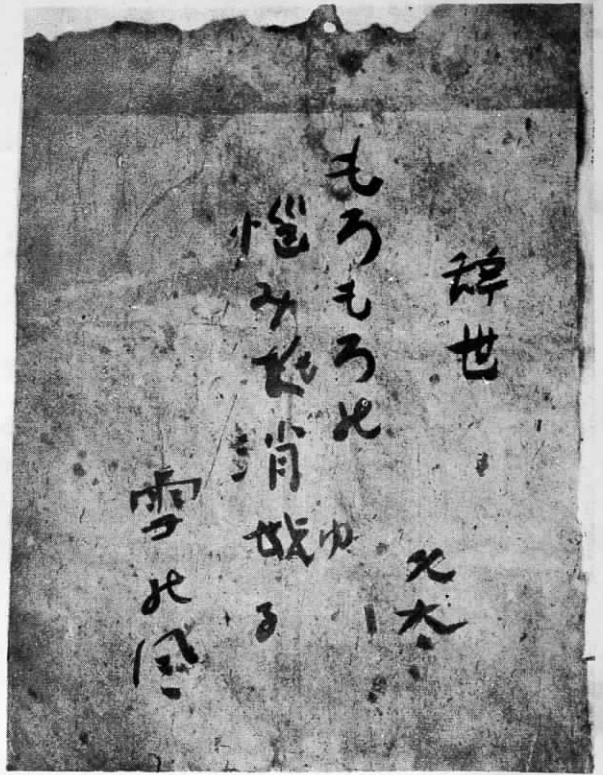 辞世
もろもろの
悩みも消ゆる
雪の風